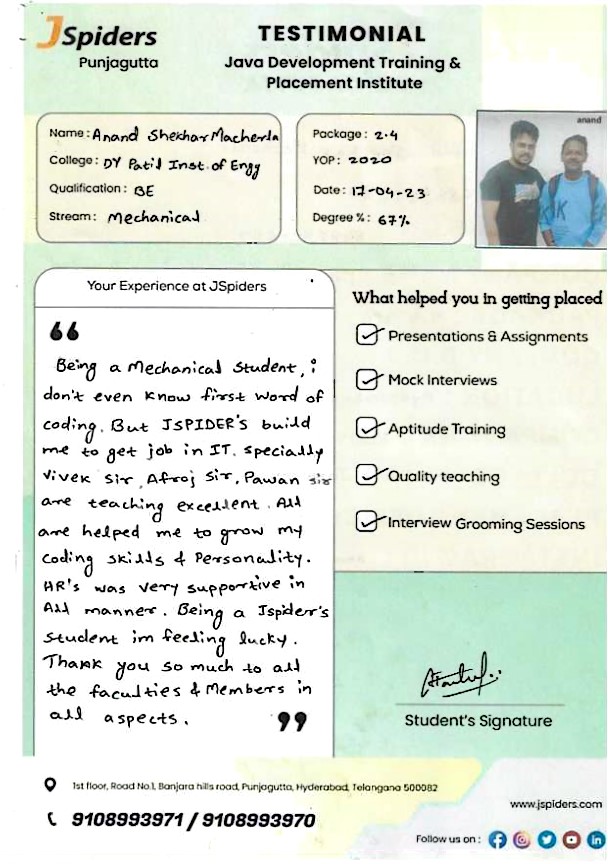 JSpiders
Punjagutta
TESTIMONIAL
Java Development Training &
Placement Institute
Name: Anand Shekhar Macherla
College: DY Patil Inst. of Engg
Qualification: BE
Stream: Mechanical
Package: 2.4
YOP: 2020
Date: 17-04-23
Degree %: 67%
anand
Your Experience at JSpiders
“
Being a Mechanical Student, i
don't even know first word of
coding. But JSPIDER'S build
me to get job in IT. specially
Vivek Sir, Afroj Sir, Pawan sir
are teaching excellent. All
are helped me to grow my
coding skills & Personality.
HR's was very supportive in
All manner. Being a Jspider's
Student im feeling lucky.
Thank you so much to all
the faculties & Members in
all aspects.
”
What helped you in getting placed
Presentations & Assignments
Mock Interviews
Aptitude Training
Quality teaching
Interview Grooming Sessions
Student's Signature
1st floor, Road No.1, Banjara hills road, Punjagutta, Hyderabad, Telangana 500082
9108993971 / 9108993970
www.jspiders.com
Follow us on :